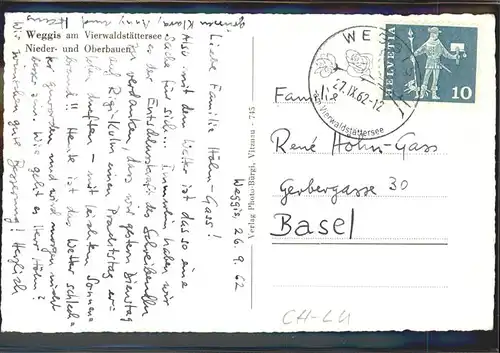 Weggis am Vierwaldstättersee
Nieder- und Oberbauen
Weggis, 26.9.62
Liebe Familie Hohn-Gass!
Also mit dem Wetter ist das so eine
Sache für sich... Immerhin haben wir
es der Entscheidung des Schreibenden
zu verdanken, dass wir gestern Dienstag
auf Rigi-Kulm einen Prachtstag er-
leben durften - mit leichtem Sonnen-
brand!! Heute ist das Wetter schlech-
ter geworden und wird morgen nicht
besser sein. Wie geht es Herr Hohn?
Wir wünschen gute Besserung! Herzlich
grüssen Klara, und
Verlag Photo Bürgi, Vitznau - 745
WEGGIS
27.IX.62-12
am Vierwaldstättersee
HELVETIA
10
Familie
René Hohn-Gass
Gerbergasse 30
Basel
CH-LU